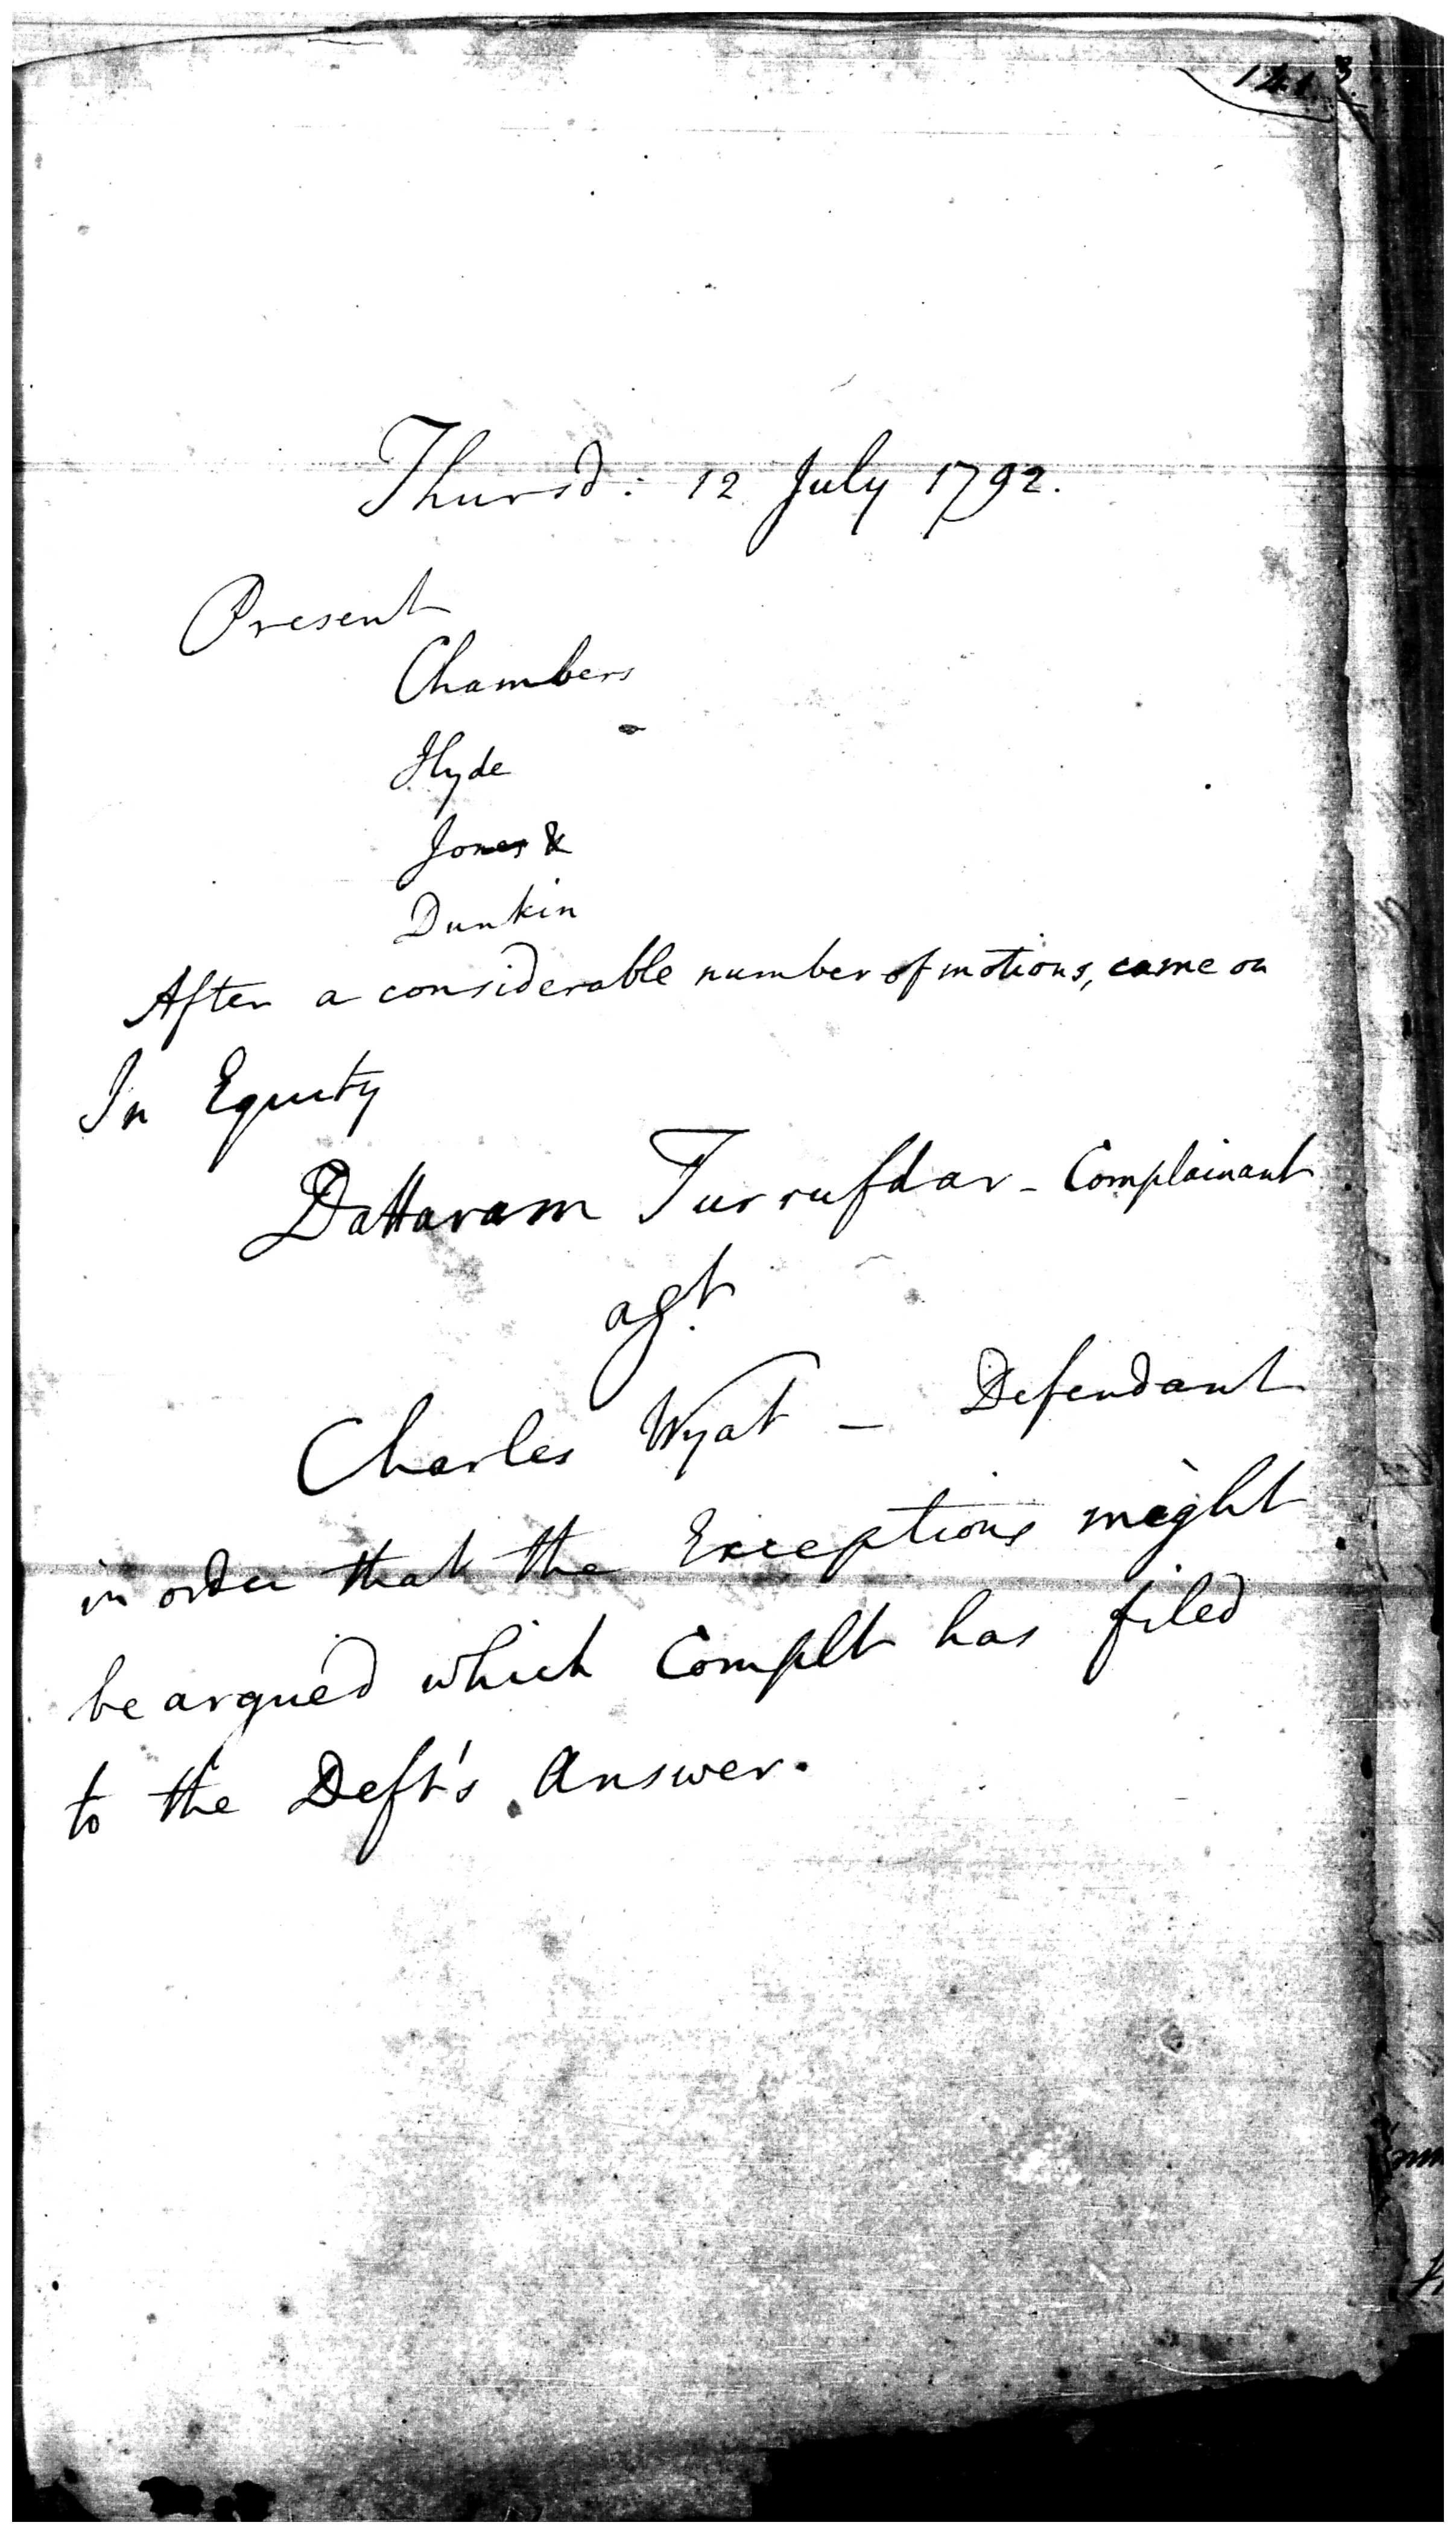 Thursd: 12 July 1792.
Present
Chambers
Hyde
Jones &
Dunkin
After a considerable number of motions, came on
In Equity
Dattaram Turrufdar - Complainant
agt.
Charles Wyat - Defendant
in order that the Exceptions might
be argued which Complt has filed
to the Deft's Answer.